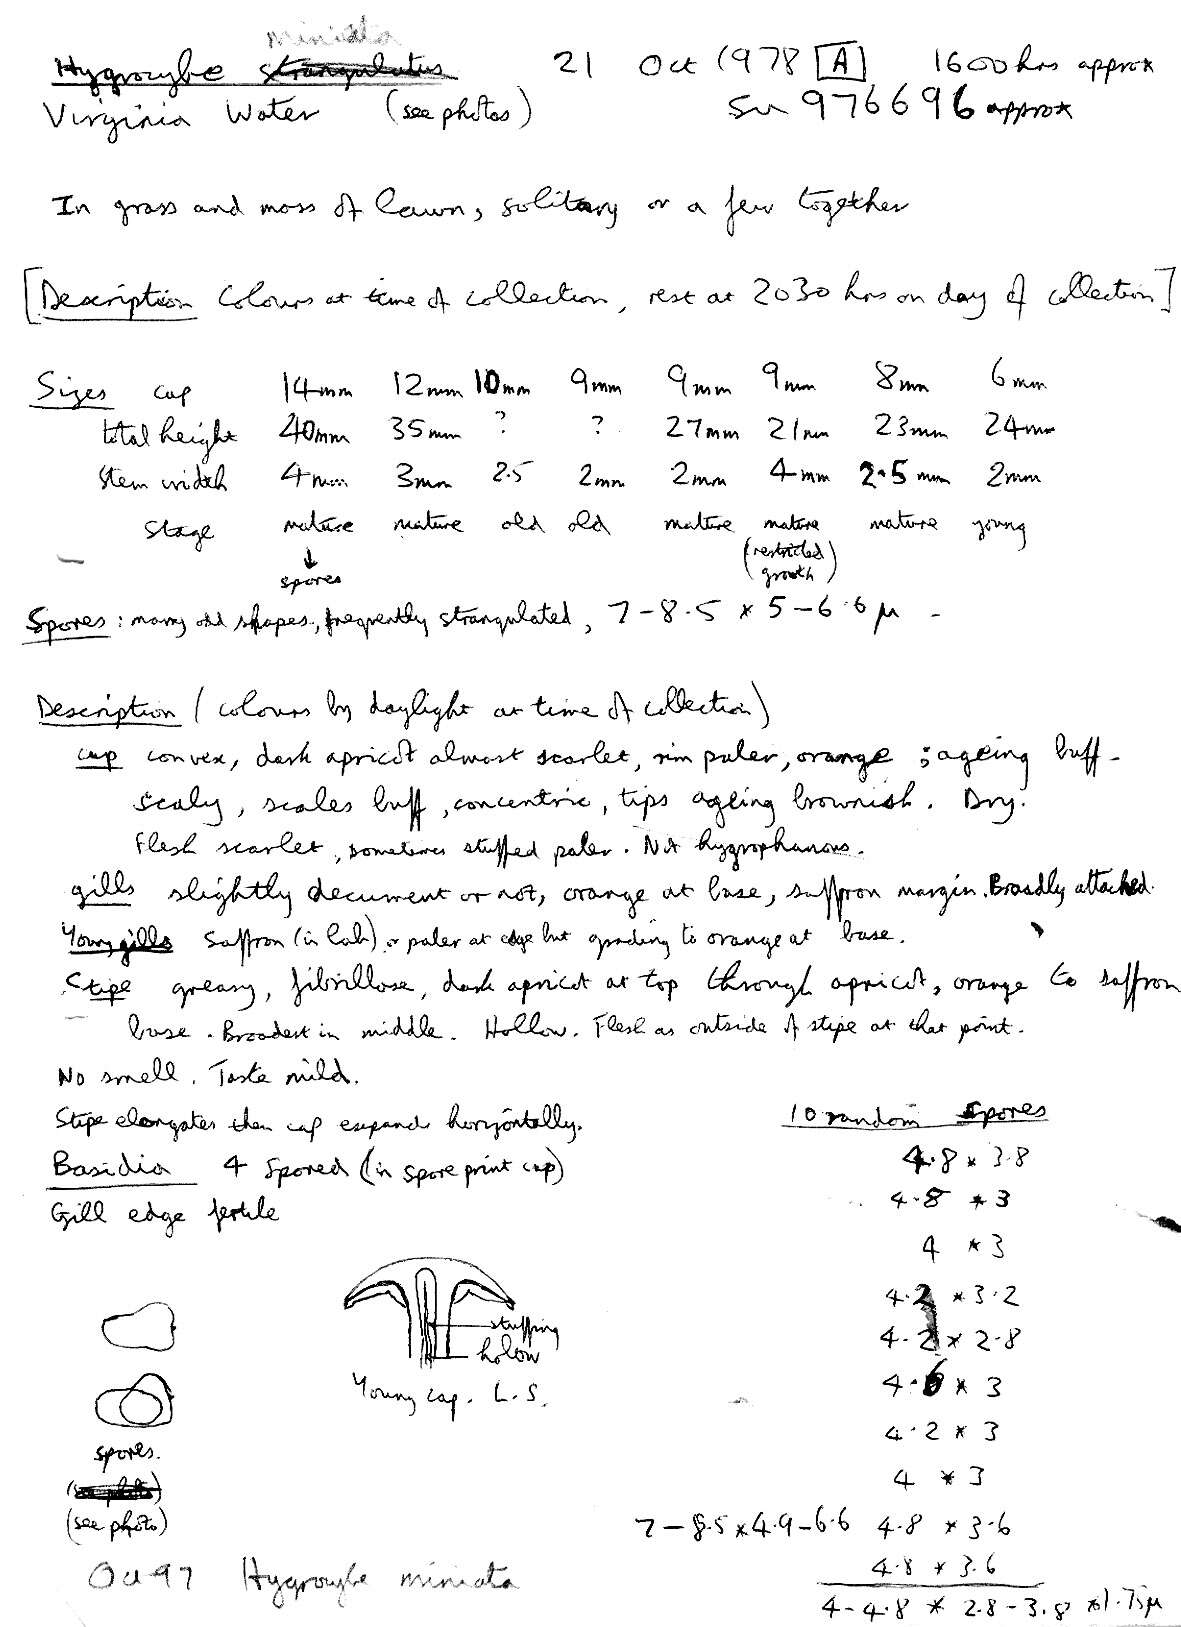 miniata
Hygrocybe strangulatus 21 Oct 1978 [A] 1600 hrs approx
Virginia Water (see photos) SU 976696 approx
In grass and moss of lawn, solitary or a few together
[Description Colours at time of collection, rest at 2030 hrs on day of collection]
Sizes cap 14mm 12mm 10mm 9mm 9mm 9mm 8mm 6mm
total height 40mm 35mm ? ? 27mm 21mm 23mm 24mm
Stem width 4mm 3mm 2.5 2mm 2mm 4mm 2.5mm 2mm
Stage mature mature old old mature mature mature young
↓ (restricted
spores growth)
Spores: many odd shapes, frequently strangulated, 7-8.5 * 5-6.6 µ -
Description (colours by daylight at time of collection)
cap convex, dark apricot almost scarlet, rim paler, orange; ageing buff-
scaly, scales buff, concentric, tips ageing brownish. Dry.
Flesh scarlet, sometimes stuffed paler. Not hygrophanous.
gills slightly decurrent or not, orange at base, saffron margin. Broadly attached.
Young gills Saffron (in lab) or paler at edge but grading to orange at base.
Stipe greasy, fibrillose, dark apricot at top through apricot, orange to saffron
base. Broadest in middle. Hollow. Flesh as outside of stipe at that point.
No smell. Taste mild.
Stipe elongates then cap expands horizontally.
10 random Spores
Basidia 4 Spored (in spore print cap)
Gill edge fertile
4.8 * 3.8
4.8 * 3
4 * 3
4.2 * 3.2
4.2 * 2.8
4.6 * 3
4.2 * 3
4 * 3
7-8.5 * 4.9-6.6 4.8 * 3.6
4.8 * 3.6
4-4.8 * 2.8-3.8 *1.75µ
stuffing
hollow
Young cap. L.S.
spores.
(see photo)
(see photo)
Oct 97 Hygrocybe miniata